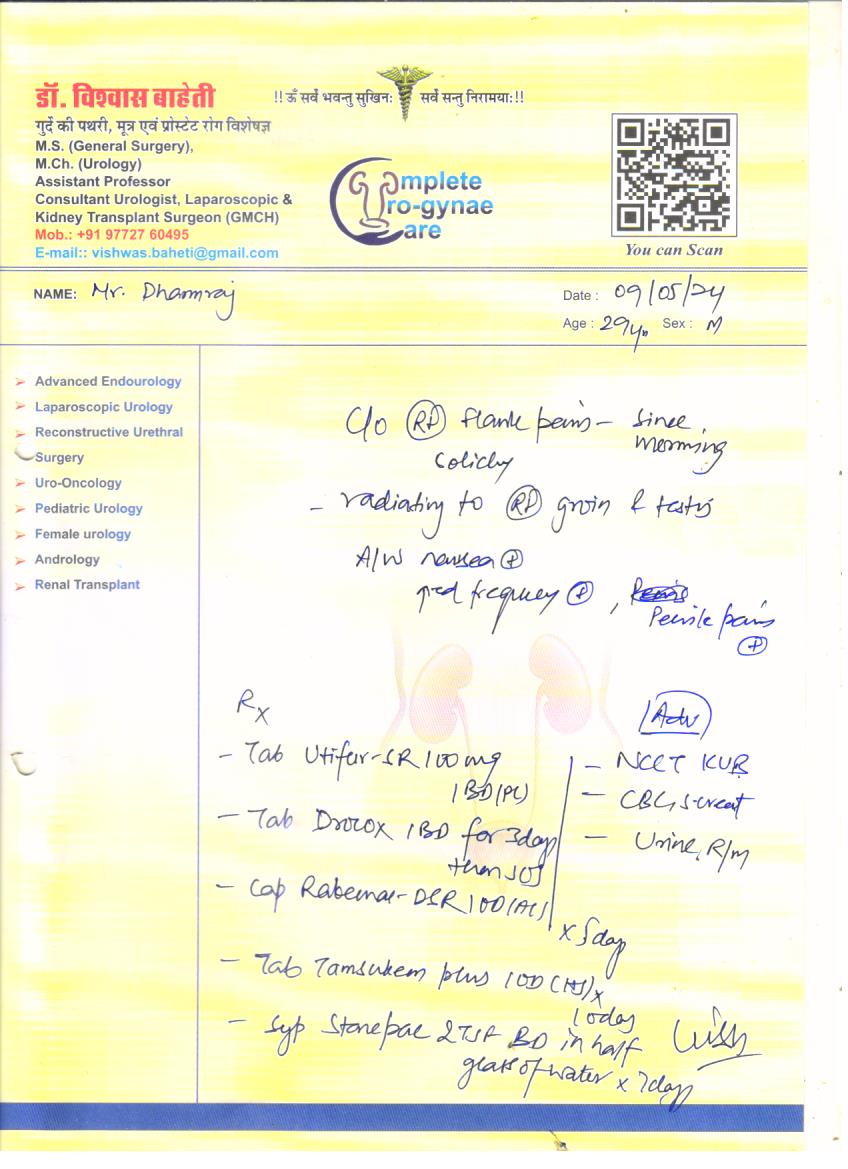 डॉ. विश्वास बाहेती
!! ॐ सर्वे भवन्तु सुखिनः सर्वे सन्तु निरामयाः!!
गुर्दे की पथरी, मूत्र एवं प्रोस्टेट रोग विशेषज्ञ
M.S. (General Surgery),
M.Ch. (Urology)
Assistant Professor
Consultant Urologist, Laparoscopic &
Kidney Transplant Surgeon (GMCH)
Mob.: +91 97727 60495
E-mail:: vishwas.baheti@gmail.com
Complete
Uro-gynae
Care
You can Scan
NAME: Mr. Dhamraj
Date : 09/05/24
Age : 29yr Sex : M
Advanced Endourology
Laparoscopic Urology
Reconstructive Urethral
Surgery
Uro-Oncology
Pediatric Urology
Female urology
Andrology
Renal Transplant
C/o Rt flank pain - since morning
colicky
- radiating to Rt groin & testis
A/W nausea +
frequency + , Penile pain +
Rx
- Tab SR 100mg
1 BD (PC)
- Tab 1 BD for 3day
then SOS
- Cap DSR 1 OD (AC)
x 5 day
- Tab plus 1 OD (HS) x
10 day
- Syp 2 TSF BD in half
glass of water x 7 day
Adv
- NCCT KUB
- CBC, S.creat
- Urine, R/m